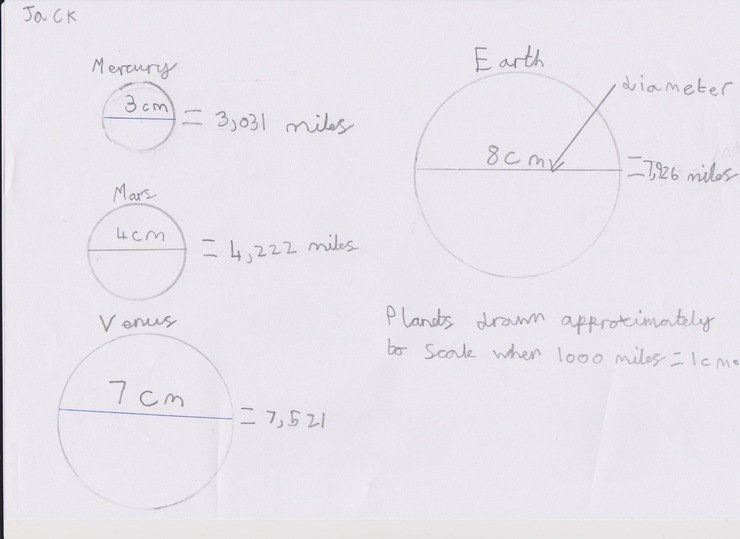 Jack
Mercury
3cm
= 3,031 miles
Mars
4cm
= 4,222 miles
Venus
7 cm
= 7,521
Earth
diameter
8cm
=7,926 miles
Planets drawn approximately
to scale when 1000 miles = 1cm.